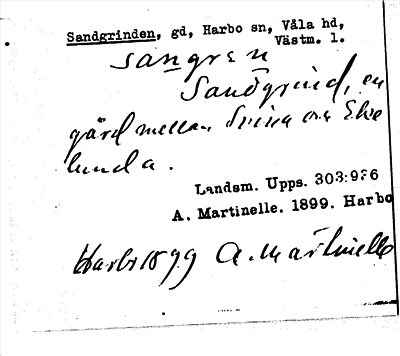 Sandgrinden, gd, Harbo sn, Våla hd,
Västm. l.
sangren
Sandgrind, en
gård mellan Svina och
lunda.
Landsm. Upps. 303:936
A. Martinelle. 1899. Harbo
Harbo 1899 A. Martinelle